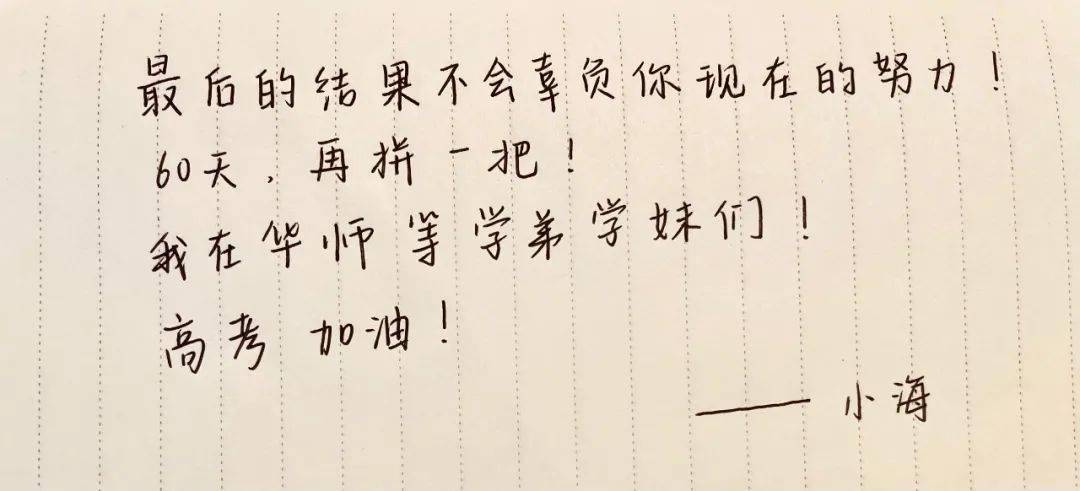 最后的结果不会辜负你现在的努力！
60天，再拼一把！
我在华师等学弟学妹们！
高考 加油！
—— 小海